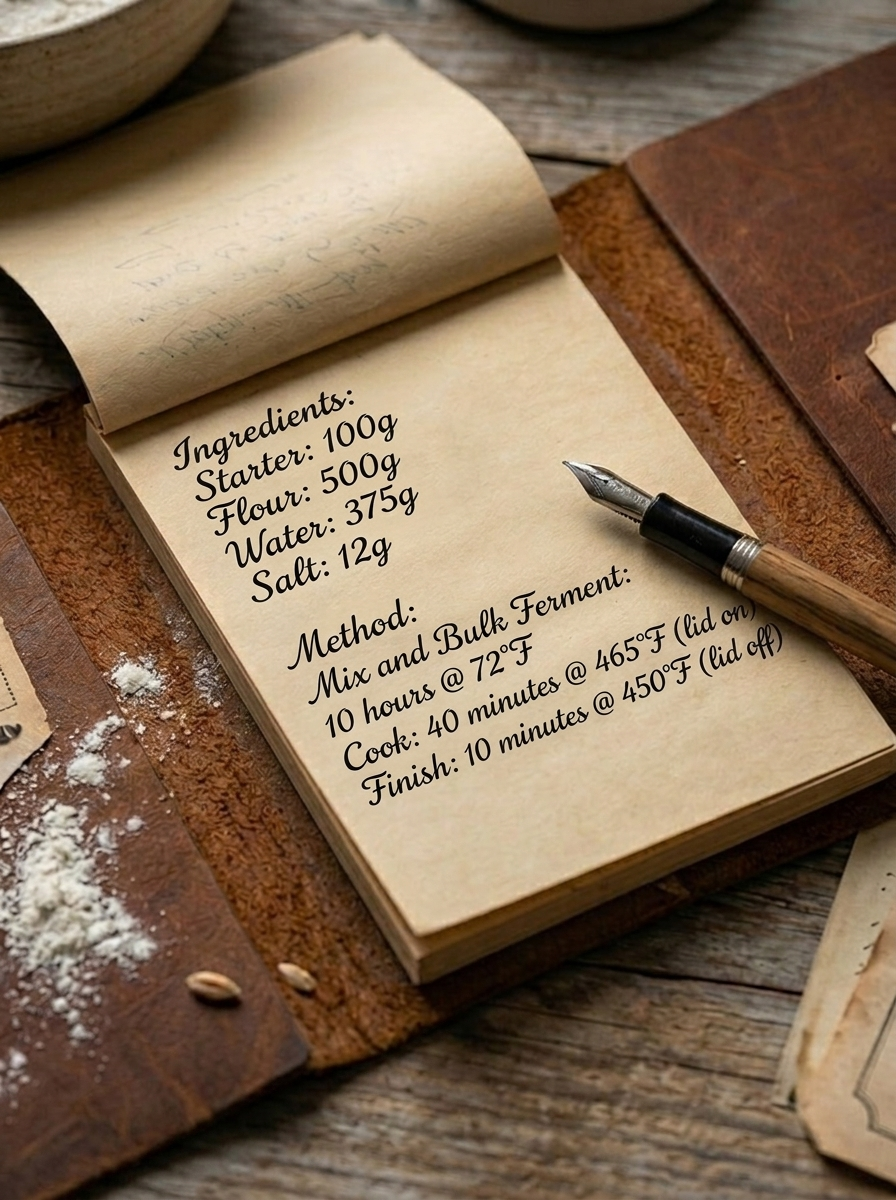 Ingredients:
Starter: 100g
Flour: 500g
Water: 375g
Salt: 12g
Method:
Mix and Bulk Ferment:
10 hours @ 72°F
Cook: 40 minutes @ 465°F (lid on)
Finish: 10 minutes @ 450°F (lid off)